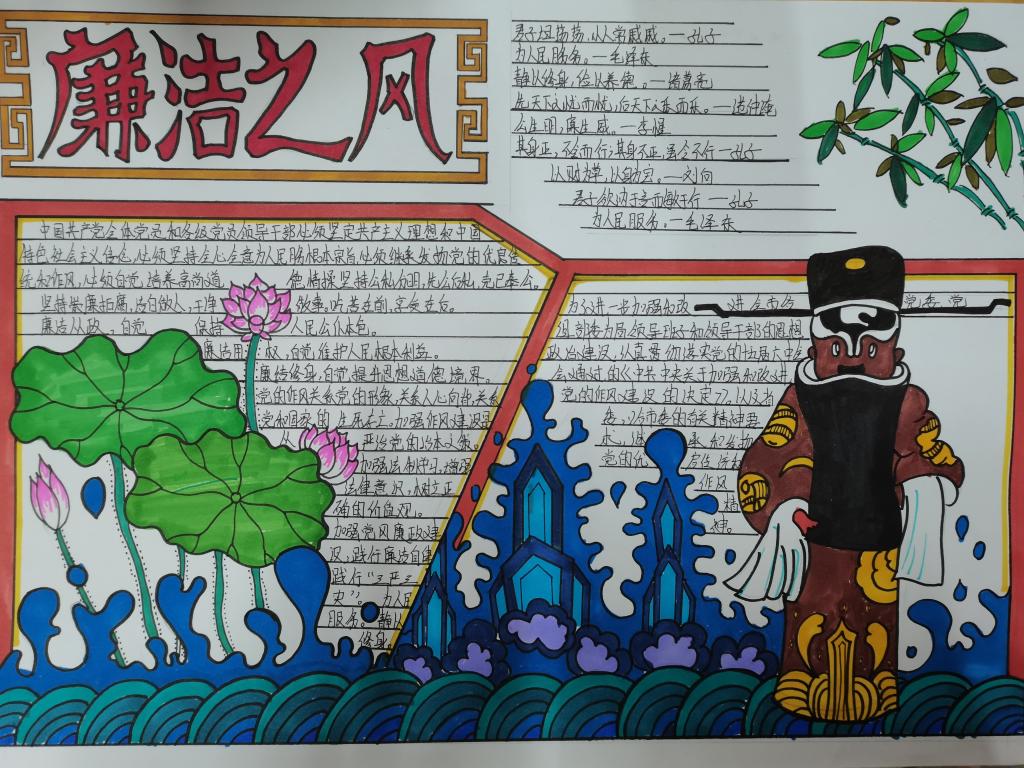 廉洁之风
君子坦荡荡,小人常戚戚。—孔子
为人民服务。—毛泽东
静以修身,俭以养德。—诸葛亮
先天下之忧而忧,后天下之乐而乐。—范仲淹
公生明,廉生威。—李惺
其身正,不令而行;其身不正,虽令不行—孔子
以财为草,以身为宝。—刘向
君子欲讷于言而敏于行—孔子
为人民服务。—毛泽东
中国共产党全体党员和各级党员领导干部必须坚定共产主义理想和中国
特色社会主义信念,必须坚持全心全意为人民服务根本宗旨,必须继承发扬党的优良传
统和作风,必须自觉培养高尚道德情操
坚持公私分明,先公后私,克己奉公。
坚持崇廉拒腐,清白做人,干净做事,吃苦在前,享受在后。
廉洁从政,自觉保持人民公仆本色。
廉洁用权,自觉维护人民根本利益。
廉洁修身,自觉提升思想道德境界。
党的作风关系党的形象,关系人心向背,关系
党和国家的生死存亡。加强作风建设是
从严治党的
加强法制
法律意识,树立正
确的价值观。
加强党风廉政建
设,践行廉洁自律
践行“三严三
实”。为人民
服务。静以
修身
为了进一步加强和改进
党委、党
组、
领导班子和领导干部的思想
政治建设,认真贯彻落实党的十五届六中全
会通过的《中共中央关于加强和改进
党的作风建设的决定》,以及省
委、市委的有关精神要
求,
继承和发扬
党的优
作风
精
神。